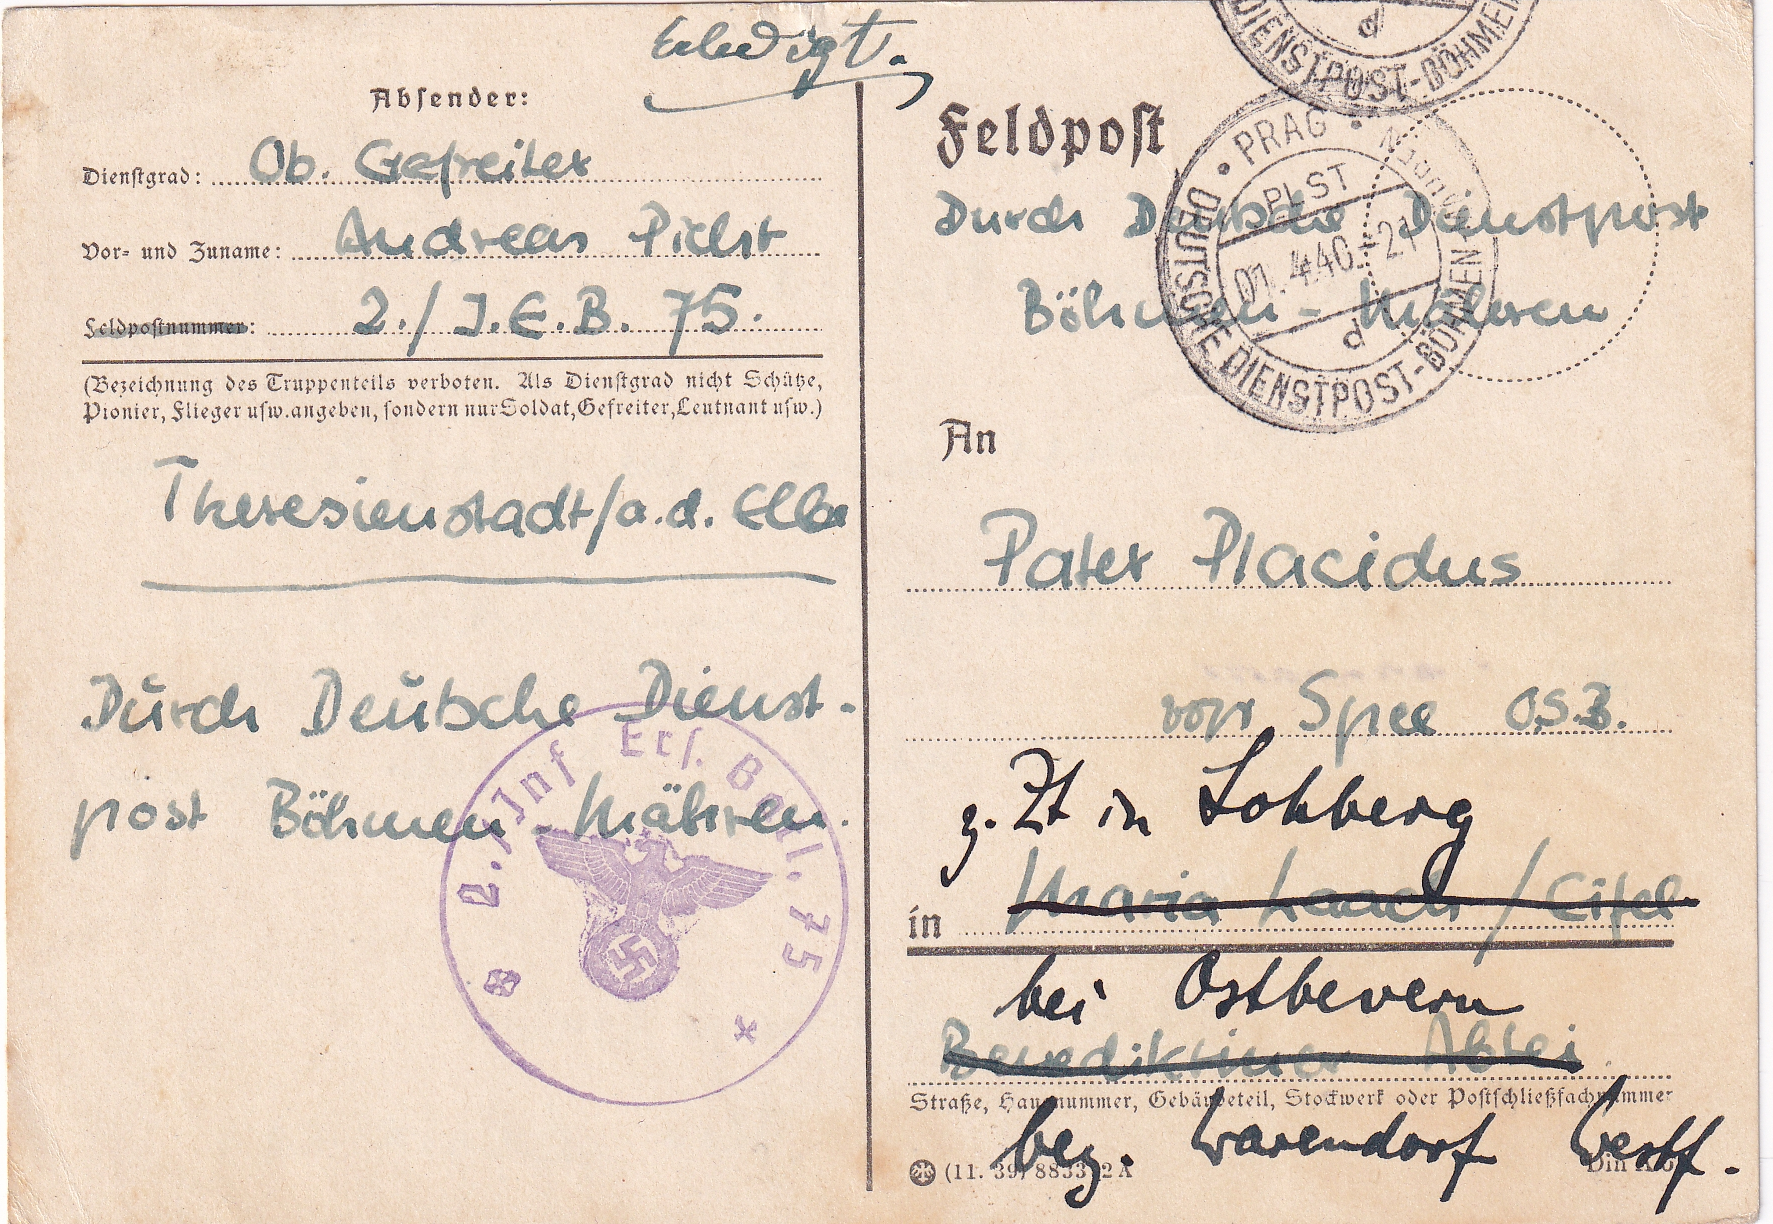 Erledigt.
Absender:
Dienstgrad: Ob. Gefreiter
Vor- und Zuname: Andreas Pichst
Feldpostnummer: 2./J.E.B. 75.
(Bezeichnung des Truppenteils verboten. Als Dienstgrad nicht Schütze,
Pionier, Flieger usw. angeben, sondern nur Soldat, Gefreiter, Leutnant usw.)
Theresienstadt/a.d. Elbe
Durch Deutsche Dienst-
post Böhmen-Mähren.
2./Inf Ers. Batl. 75
Feldpost
DIENSTPOST-BÖHMEN
d
PRAG
PLST
01.4.40.-21
d
DEUTSCHE DIENSTPOST-BÖHMEN
Durch Deutsche Dienstpost
Böhmen-Mähren
An
Pater Placidus
von Spee O.S.B.
z. Zt in Lohberg
in Maria Laach / Eifel
bei Ostbevern
Benediktiner Abtei
Straße, Hausnummer, Gebäudeteil, Stockwerk oder Postschließfachnummer
bez. Warendorf Westf.
(11. 39) 8833 2 A
Din A 6